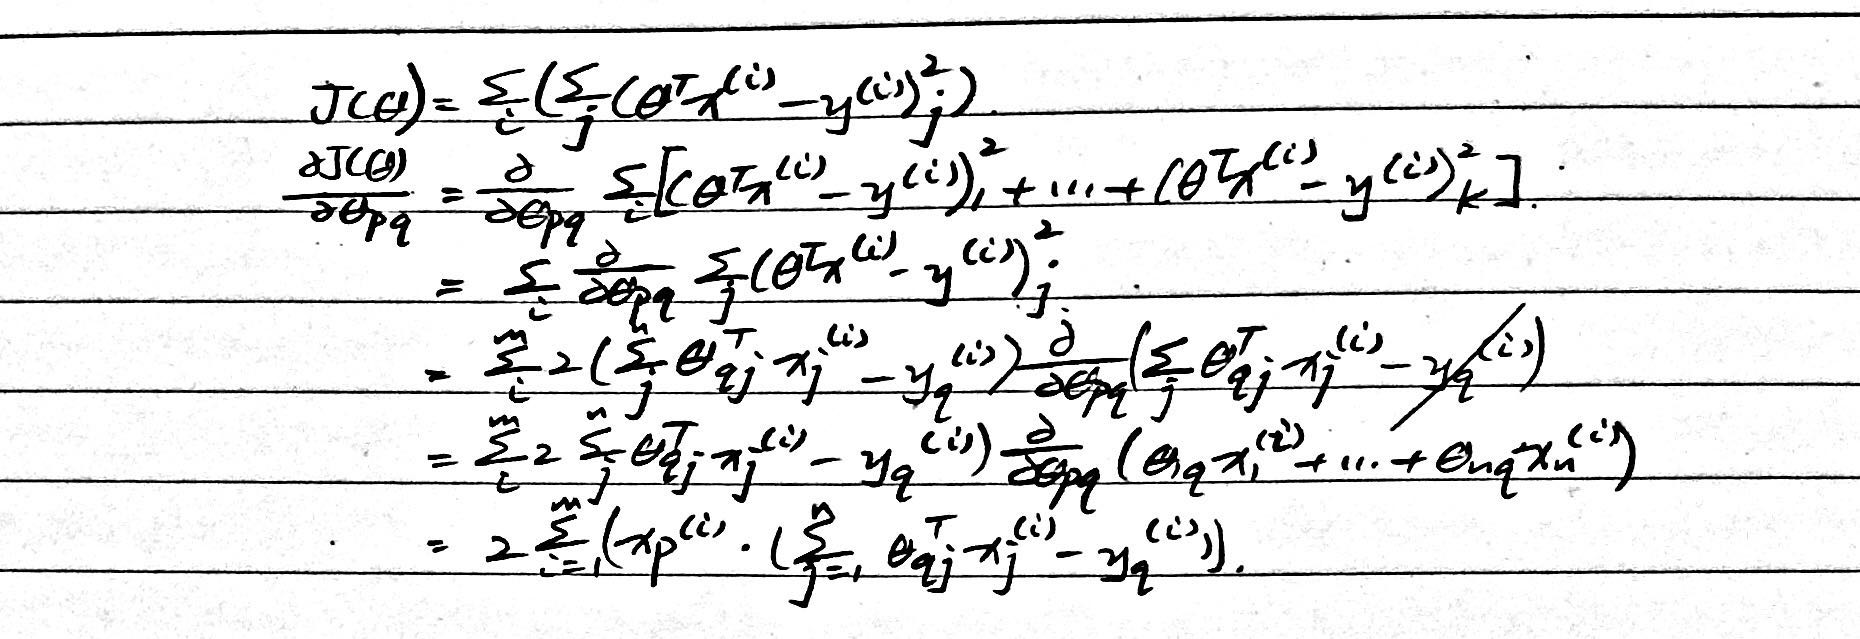 J(θ) = Σ_i (Σ_j (θ^T x^(i) − y^(i))_j^2).
∂J(θ)/∂θ_pq = ∂/∂θ_pq Σ_i [(θ^T x^(i) − y^(i))_1^2 + ... + (θ^T x^(i) − y^(i))_k^2].
= Σ_i ∂/∂θ_pq Σ_j (θ^T x^(i) − y^(i))_j^2
= Σ_i^m 2 (Σ_j^n θ_qj^T x_j^(i) − y_q^(i)) ∂/∂θ_pq (Σ_j θ_qj^T x_j^(i) − y_q^(i))
= Σ_i^m 2 Σ_j^n θ_qj^T x_j^(i) − y_q^(i)) ∂/∂θ_pq (θ_1q x_1^(i) + ... + θ_nq x_n^(i))
= 2 Σ_{i=1}^m (x_p^(i) · (Σ_{j=1}^n θ_qj^T x_j^(i) − y_q^(i))).